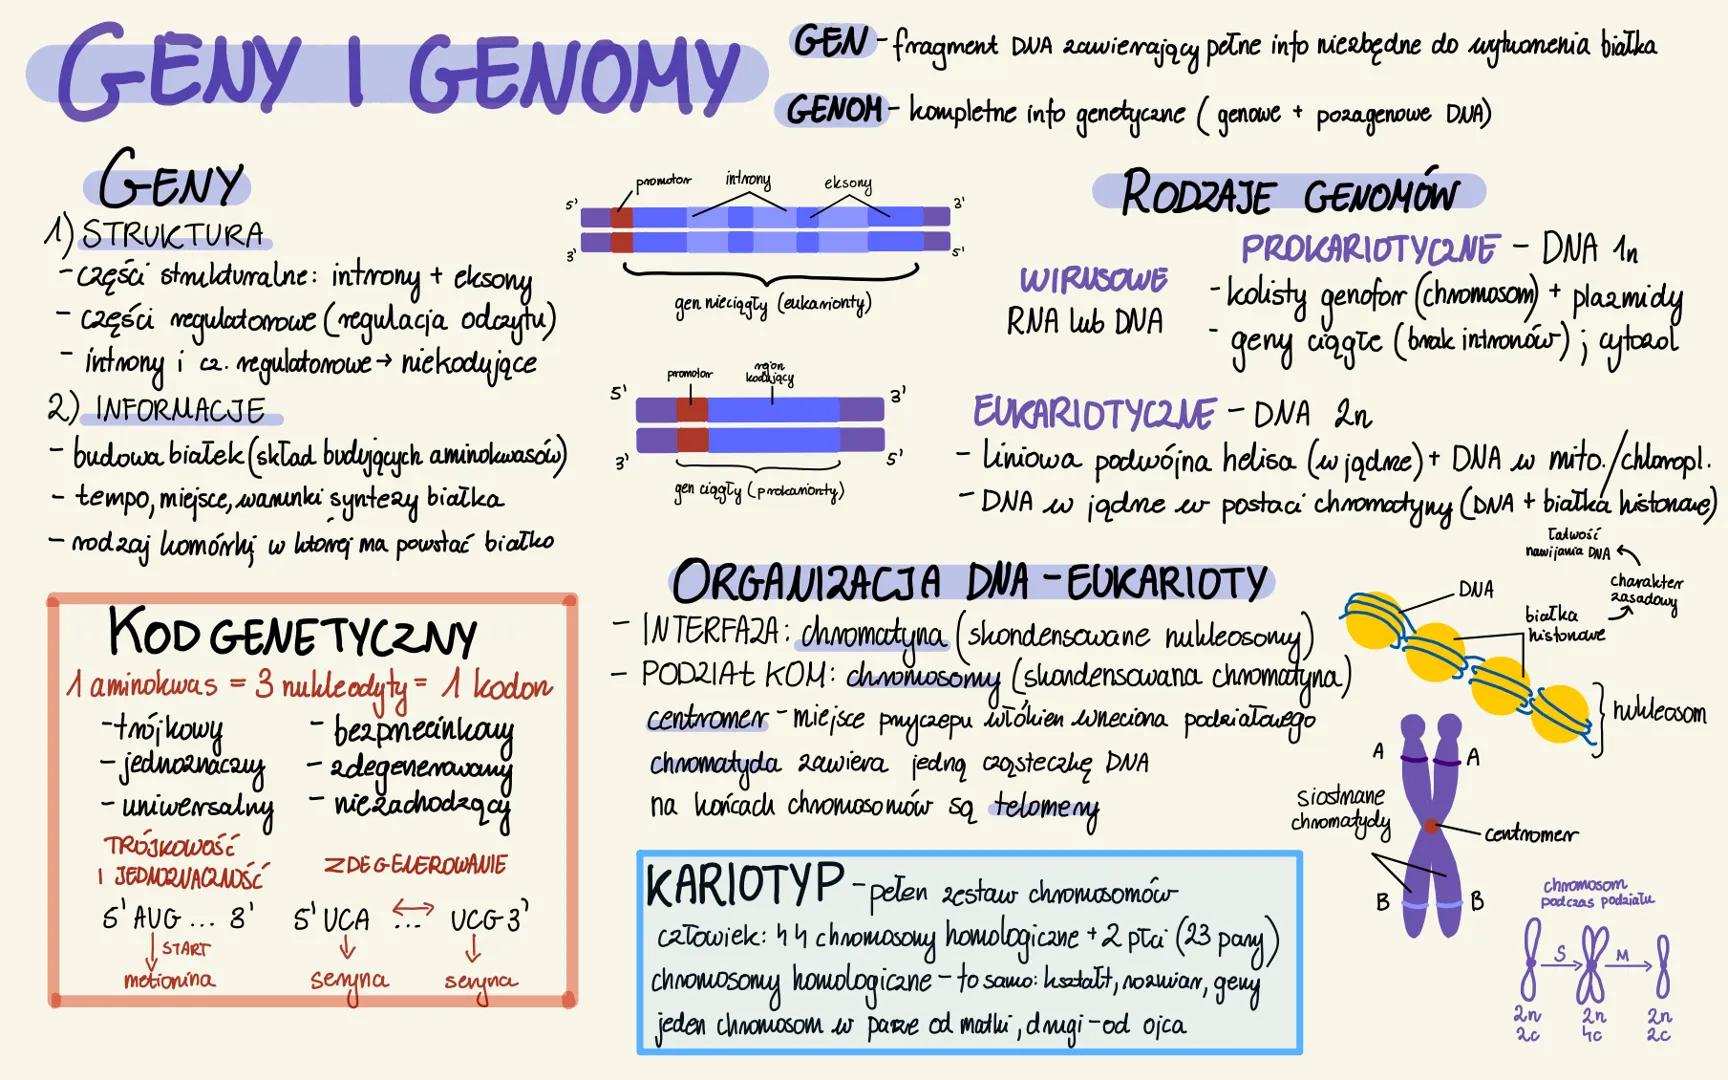 GENY I GENOMY
GEN - fragment DNA zawierający pełne info niezbędne do wytworzenia białka
GENOM - kompletne info genetyczne (genowe + pozagenowe DNA)
GENY
1) STRUKTURA
- części strukturalne: introny + eksony
- części regulatorowe (regulacja odczytu)
- introny i cz. regulatorowe → niekodujące
2) INFORMACJE
- budowa białek (skład budujących aminokwasów)
- tempo, miejsce, warunki syntezy białka
- rodzaj komórki w której ma powstać białko
promotor introny eksony
5' 3'
3' 5'
gen nieciągły (eukarionty)
promotor region kodujący
5' 3'
3' 5'
gen ciągły (prokarionty)
RODZAJE GENOMÓW
WIRUSOWE
RNA lub DNA
PROKARIOTYCZNE - DNA 1n
- kolisty genofor (chromosom) + plazmidy
- geny ciągłe (brak intronów) ; cytozol
EUKARIOTYCZNE - DNA 2n
- liniowa podwójna helisa (w jądrze) + DNA w mito./chloropl.
- DNA w jądrze w postaci chromatyny (DNA + białka histonowe)
KOD GENETYCZNY
1 aminokwas = 3 nukleodyty = 1 kodon
- trójkowy
- jednoznaczny
- uniwersalny
- bezprzecinkowy
- zdegenerowany
- niezachodzący
TRÓJKOWOŚĆ
I JEDNOZNACZNOŚĆ
5' AUG ... 3'
START
metionina
ZDEGENEROWANIE
5' UCA ↔ ... UCG 3'
seryna seryna
ORGANIZACJA DNA - EUKARIOTY
- INTERFAZA: chromatyna (skondensowane nukleosomy)
- PODZIAŁ KOM: chromosomy (skondensowana chromatyna)
centromer - miejsce przyczepu włókien wrzeciona podziałowego
chromatyda zawiera jedną cząsteczkę DNA
na końcach chromosomów są telomery
KARIOTYP - pełen zestaw chromosomów
człowiek: 44 chromosomy homologiczne + 2 płci (23 pary)
chromosomy homologiczne - to samo: kształt, rozmiar, geny
jeden chromosom w parze od matki, drugi - od ojca
łatwość
nawijania DNA
charakter
zasadowy
DNA
białka
histonowe
nukleosom
A A
siostrzane
chromatydy
centromer
B B
chromosom
podczas podziału
S M
2n 2n 2n
2c 4c 2c